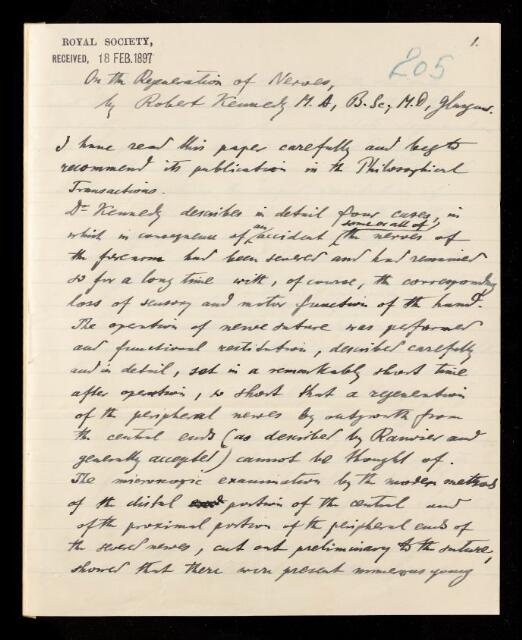 1.
ROYAL SOCIETY,
RECEIVED, 18 FEB. 1897
205
On the Regeneration of Nerves,
by Robert Kennedy M.A, B.Sc, M.D, Glasgow.
I have read this paper carefully and beg to
recommend its publication in the Philosophical
Transactions.
Dr Kennedy describes in detail four cases, in
which in consequence of an accident some or all of the nerves of
the forearm had been severed and had remained
so for a long time with, of course, the corresponding
loss of sensory and motor function of the hand.
The operation of nerve suture was performed
and functional restitution, described carefully
and in detail, set in a remarkably short time
after operation, so short that a regeneration
of the peripheral nerves by outgrowth from
the central ends (as described by Ranvier and
generally accepted) cannot be thought of.
The microscopic examination by the modern methods
of the distal end portion of the central and
of the proximal portion of the peripheral ends of
the severed nerves, cut out preliminary to the suture,
showed that there were present numerous young